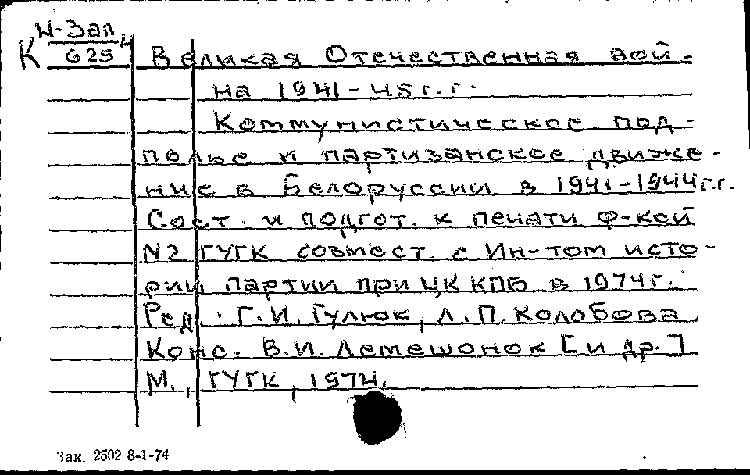 Ч-Зал
К 625
Великая Отечественная вой-
на 1941-45г.г.
Коммунистическое под-
полье и партизанское движе-
ние в Белоруссии в 1941-1944г.г.
Сост. и подгот. к печати ф-кой
N2 ГУГК совмест. с Ин-том исто-
рии партии при ЦК КПБ в 1974г.
Ред.: Г.И. Гулюк, Л.П. Колобова
Конс. В.И. Лемешонок [и др.]
М., ГУГК, 1974.
Зак. 2602 8-1-74